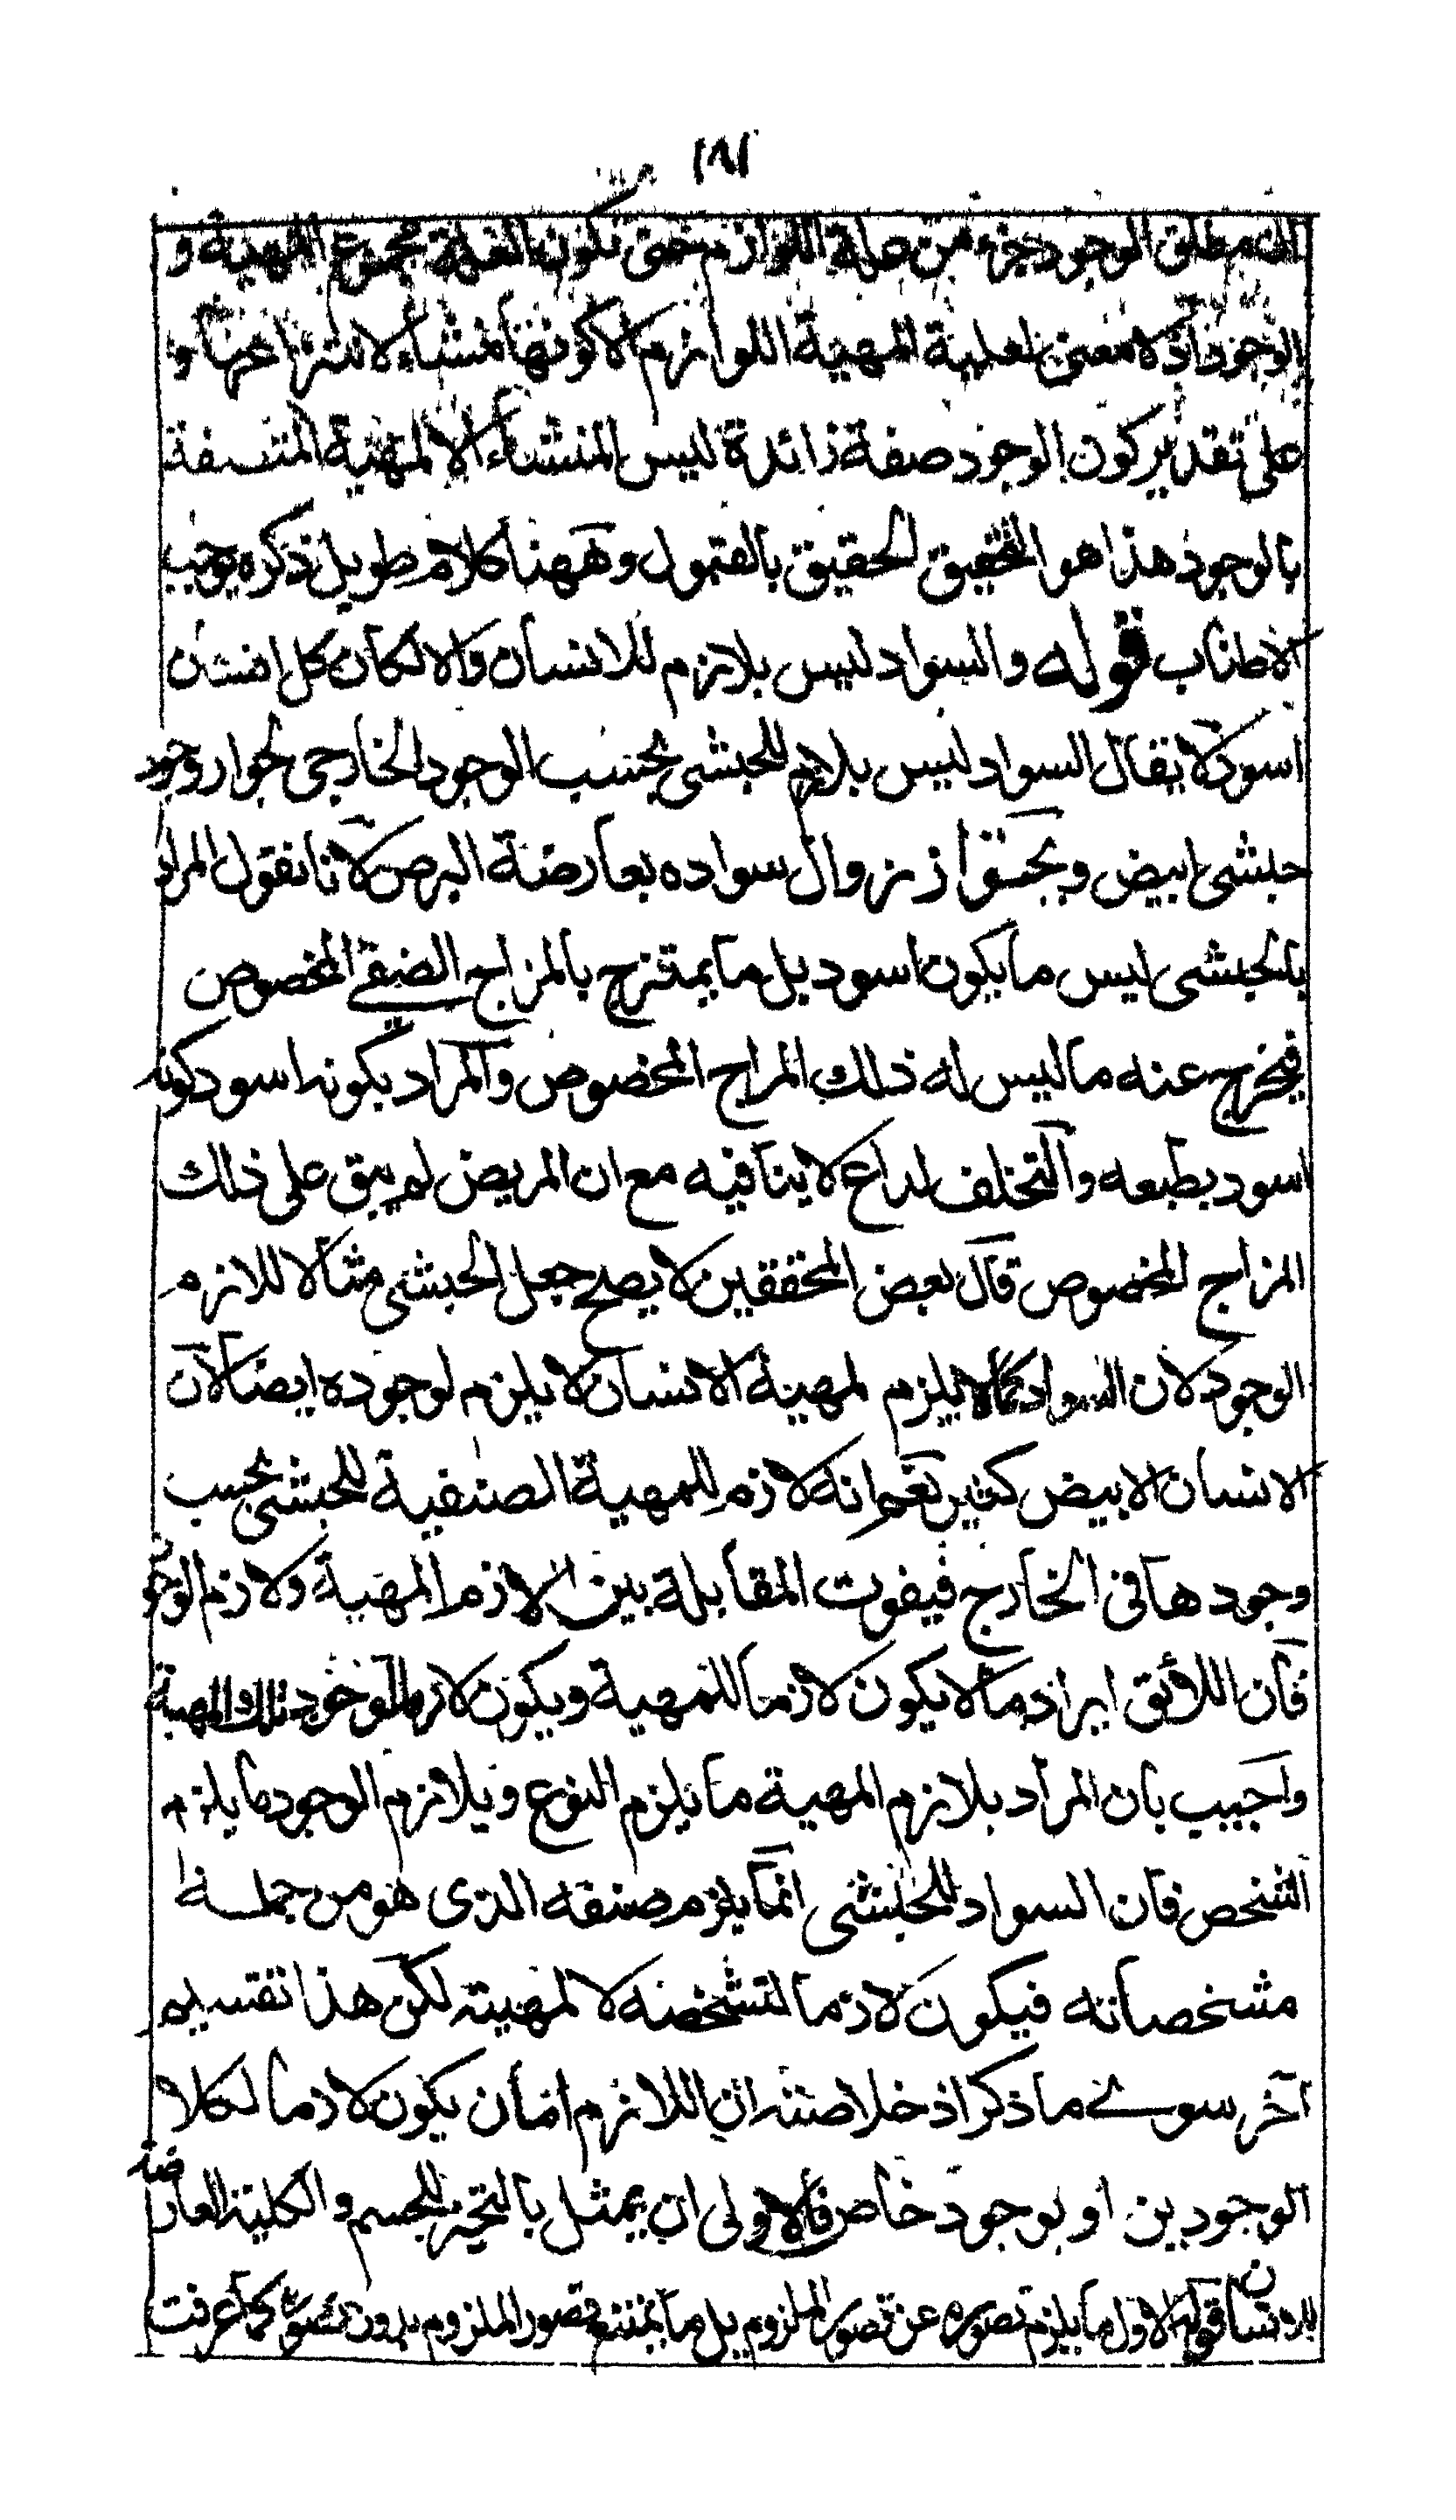 ١٨١
ان مطلق الوجود جزء من علة اللوازم حتى تكون العلة مجموع المهية و
الوجود اذ لا معنى لعلية المهية اللوازم الا كونها منشاء لانتزاعها و
على تقدير كون الوجود صفة زائدة ليس المنشاء الا المهية المتصفة
بالوجود هذا هو التحقيق الحقيق بالقبول وههنا كلام طويل ذكره يوجب
الاطناب قوله والسواد ليس بلازم للانسان والا لكان كل انسان
اسود لا يقال السواد ليس بلازم للحبشى بحسب الوجود الخارجى لجواز وجود
حبشى ابيض وبجواز زوال سواده بعارضة البرص لانا نقول المراد
بالحبشى ليس ما يكون اسود بل ما يمتزج بالمزاج الصنفى المخصوص
فيخرج عنه ما ليس له ذلك المزاج المخصوص والمراد بكونه اسود كونه
اسود بطبعه والتخلف لداع لا ينافيه مع ان المريض لم يبق على ذلك
المزاج المخصوص قال بعض المحققين لا يصح جعل الحبشى مثالا للازم
الوجود لان السواد كما لا يلزم لمهية الانسان لا يلزم لوجوده ايضا لان
الانسان الابيض كثير نعم انه لازم للمهية الصنفية للحبشى بحسب
وجودها فى الخارج فيفوت المقابلة بين لازم المهية ولازم الوجود
فان اللائق ايراد ما لا يكون لازما للمهية ويكون لازما لوجود تلك المهية
واجيب بان المراد بلازم المهية ما يلزم النوع وبلازم الوجود ما يلزم
الشخص فان السواد للحبشى انما يلزم صنفه الذى هو من جملة
مشخصاته فيكون لازما لتشخصه لا لمهيته لكن هذا تقسيم
آخر سوى ما ذكر اذ خلاصته ان اللازم اما ان يكون لازما لكلا
الوجودين او لوجود خاص فالاولى ان يمثل بالتحيز للجسم والكلية العارضة
للانسان قوله الاول ما يلزم تصوره عن تصور الملزوم بل ما يمتنع تصور الملزوم بدون تصوره كما عرفت